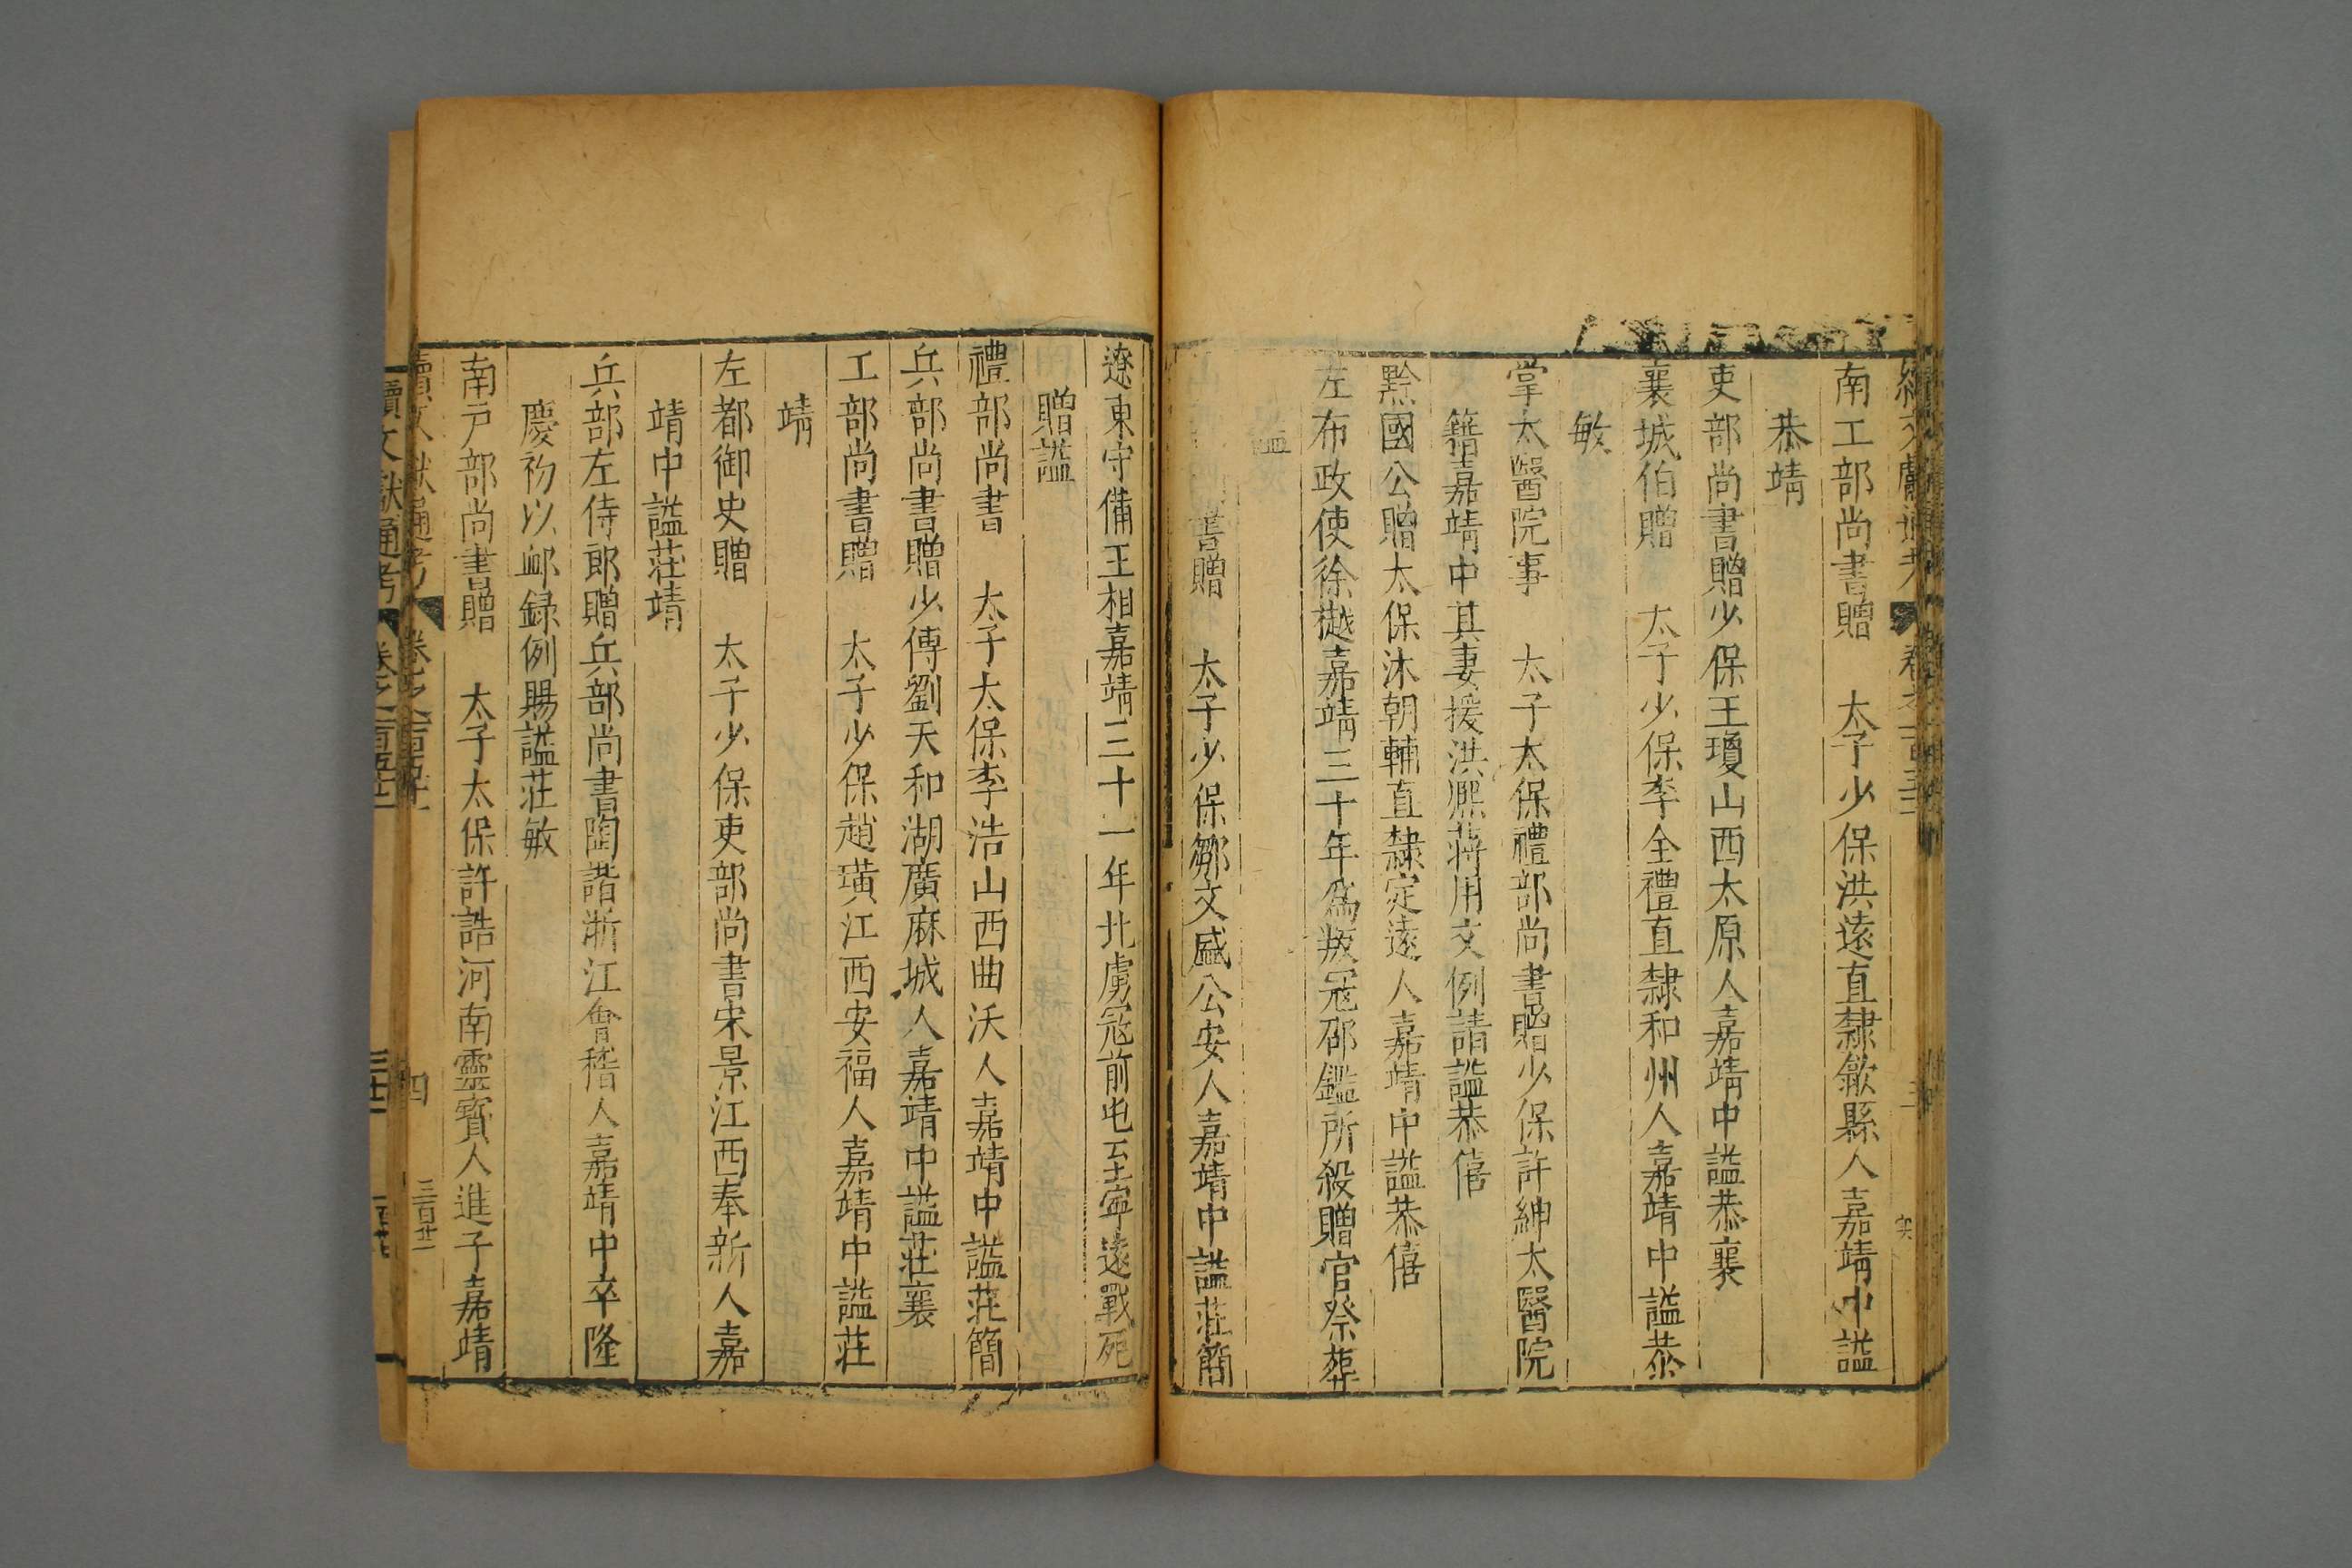 南工部尚書贈　太子少保洪遠直隸歙縣人嘉靖中謚
恭靖
吏部尚書贈少保王瓊山西太原人嘉靖中謚恭襄
襄城伯贈　太子少保李全禮直隸和州人嘉靖中謚恭
敏
掌太醫院事　太子太保禮部尚書贈少保許紳太醫院
籍嘉靖中其妻援洪熙蔣用文例請謚恭僖
黔國公贈太保沐朝輔直隸定遠人嘉靖中謚恭僖
左布政使徐樾嘉靖三十年爲叛冦邵鑑所殺贈官祭葬
謚
書贈　太子少保鄒文盛公安人嘉靖中謚莊簡
遼東守備王相嘉靖三十一年北虜冦前屯云士寧遠戰死
贈謚
禮部尚書　太子太保李浩山西曲沃人嘉靖中謚莊簡
兵部尚書贈少傅劉天和湖廣麻城人嘉靖中謚莊襄
工部尚書贈　太子少保趙璜江西安福人嘉靖中謚莊
靖
左都御史贈　太子少保吏部尚書宋景江西奉新人嘉
靖中謚莊靖
兵部左侍郎贈兵部尚書陶諧浙江會稽人嘉靖中卒隆
慶初以䘏録例賜謚莊敏
南戸部尚書贈　太子太保許誥河南靈寳人進子嘉靖
續文獻通考　卷之一百五十二
四
三百廿一